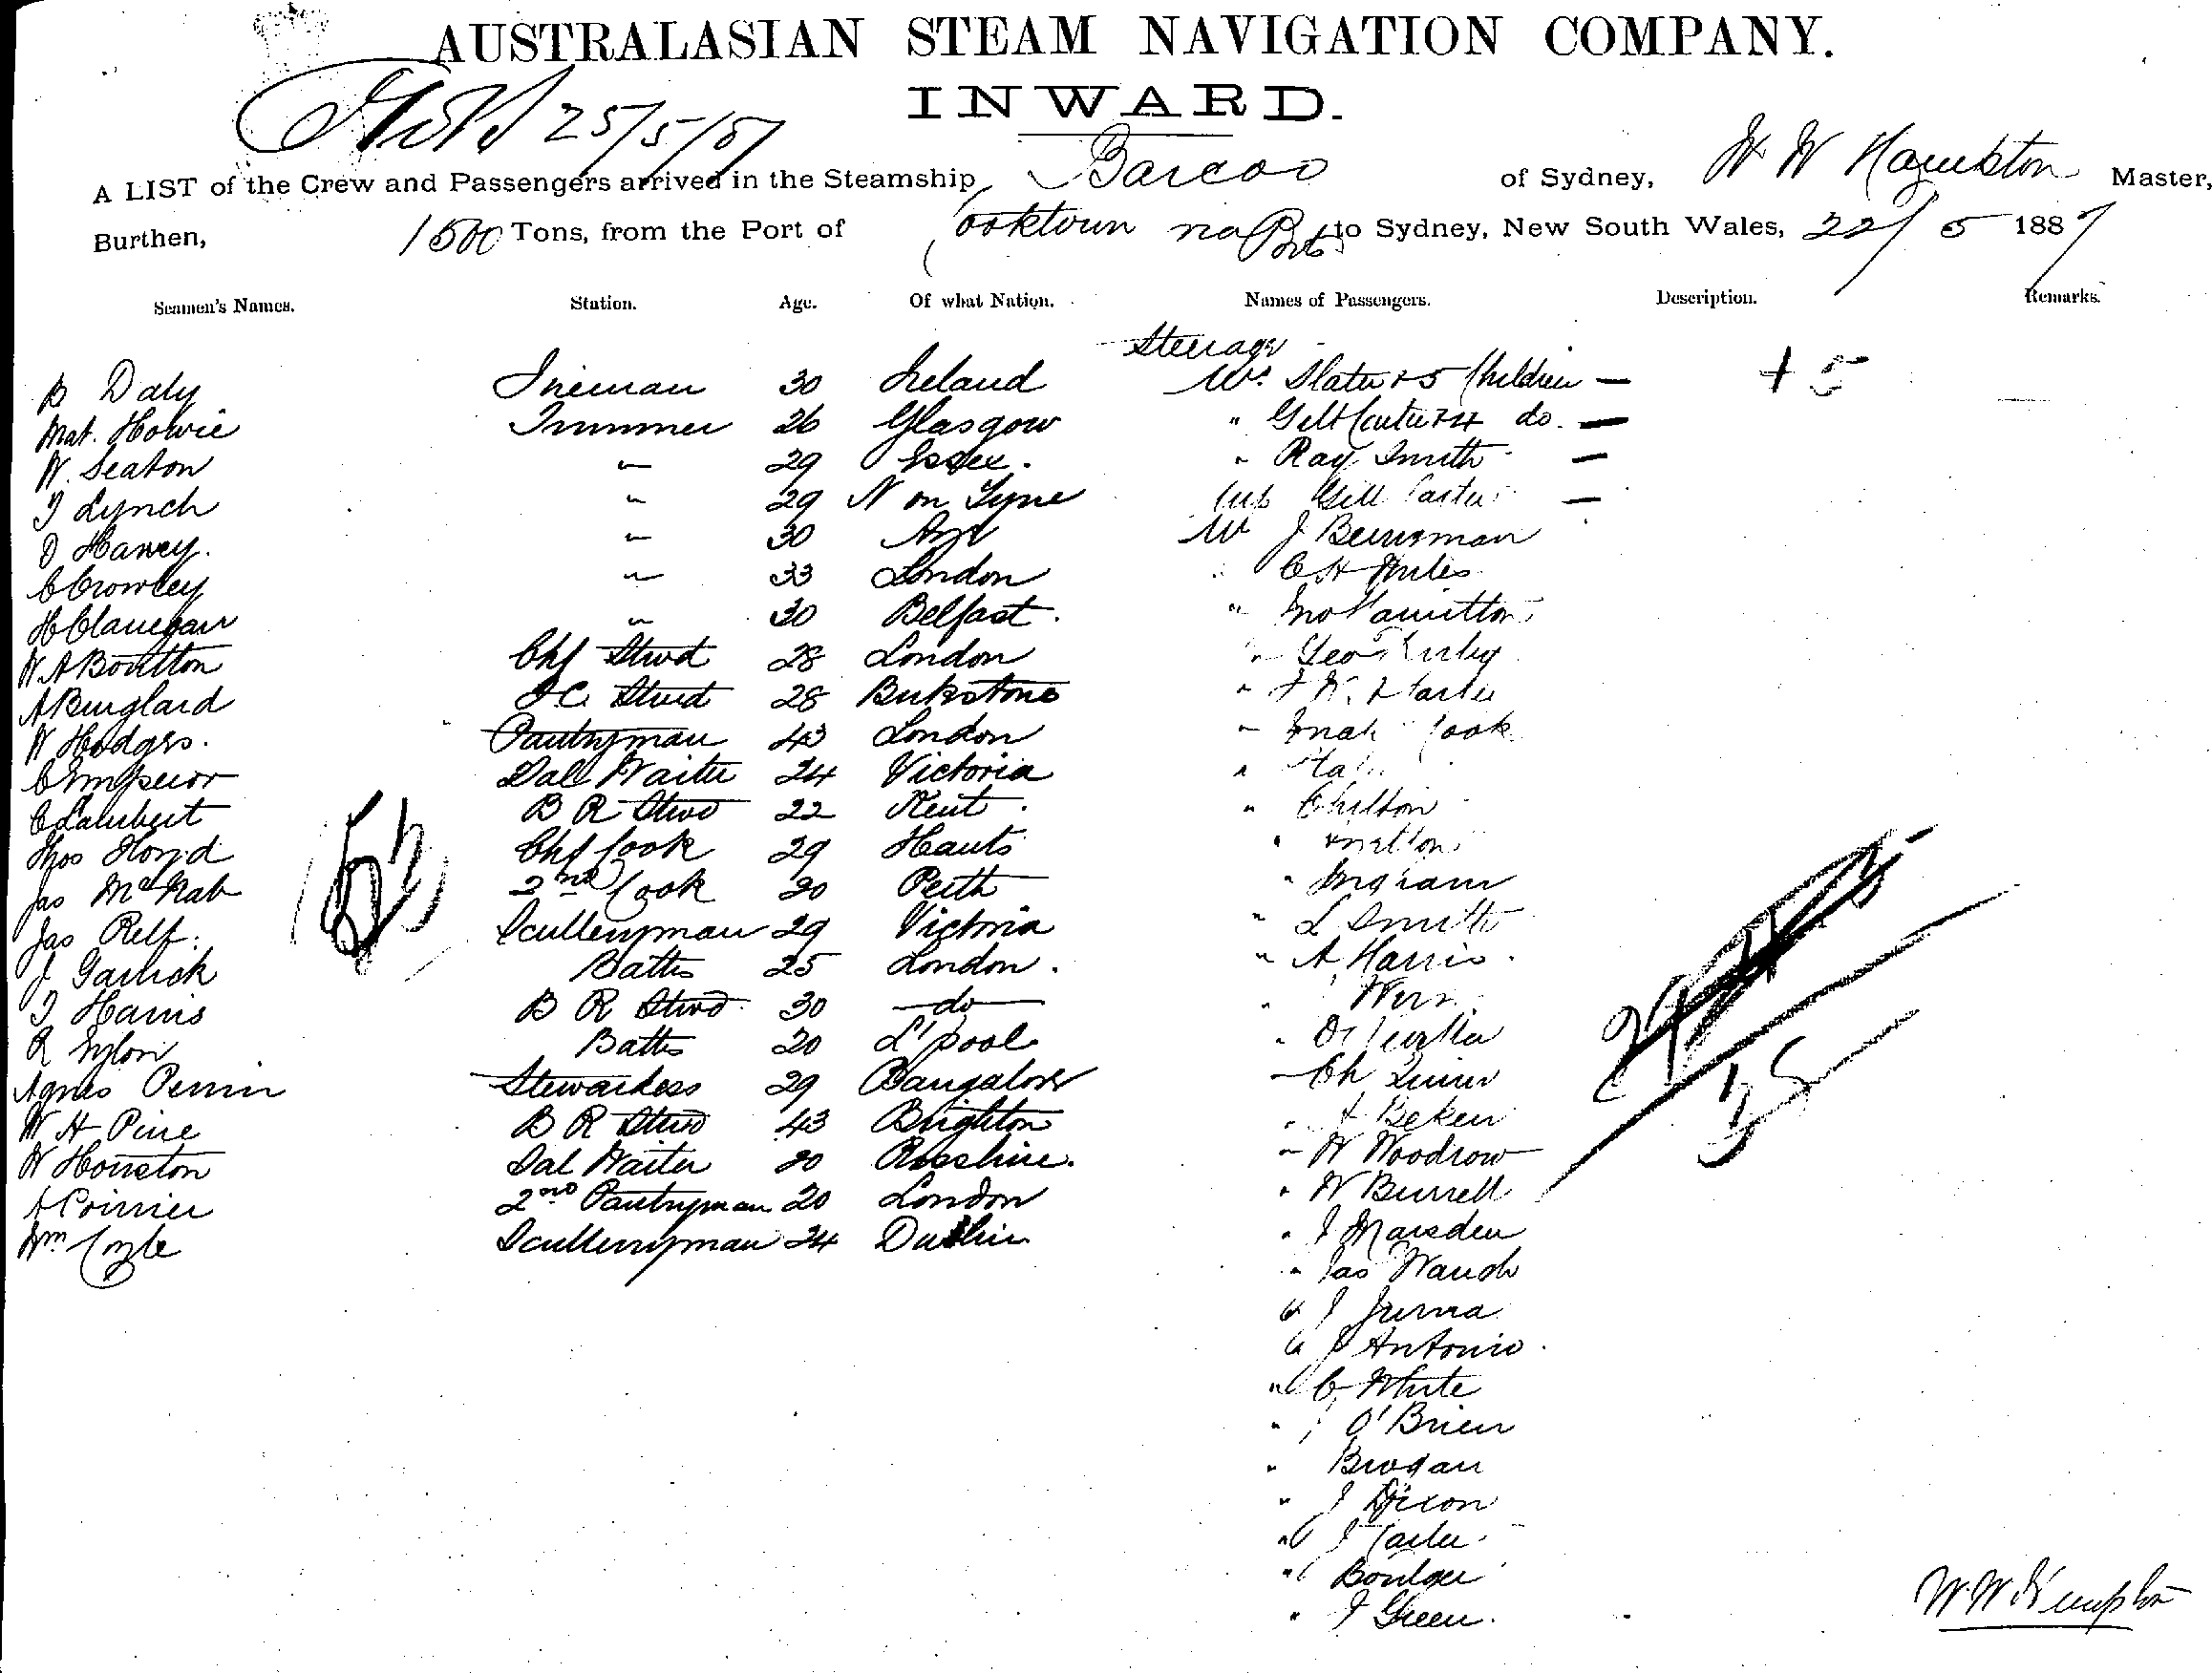 AUSTRALASIAN STEAM NAVIGATION COMPANY.
INWARD.
25/5/87
A LIST of the Crew and Passengers arrived in the Steamship Barcoo of Sydney, W W Hampton Master,
Burthen, 1500 Tons, from the Port of Cooktown via Ports to Sydney, New South Wales, 22/5 1887
Seamen's Names. Station. Age. Of what Nation. Names of Passengers. Description. Remarks.
Steerage
B Daly Fireman 30 Ireland Mrs Slater & 5 Children — + 5
Mat. Howie Trimmer 26 Glasgow " do. —
W. Seaton " 29 Essex. " Ray Smith —
T Lynch " 29 N on Tyne —
D Harvey. " 30 Ayr Mr J Berryman
C Crowley " 33 London " C H Miles
H Clanegan " 30 Belfast. " Jno Hamilton
W A Boulton Chf Stwd 28 London " Geo Kirby
A Burglard F C Stwd 28 "
W Hodges. Pantryman 43 London " Cook
C Emperor Sal Waiter 24 Victoria "
C Lambert B R Stwd 22 Kent. " Chilton
Thos Floyd Chf Cook 29 Hants "
Jas McNab 2nd Cook 20 Perth " Ingram
Jas Relf. Sculleryman 29 Victoria " L Smith
J Garlick Batts 25 London. " A Harris.
T Harris B R Stwd 30 —do— "
R Sylon Batts 20 L'pool "
Agnes Perrin Stewardess 29 Bangalore " Ch Quinn
W H Pine B R Stwd 43 Brighton " Beken
W Houston Sal Waiter 20 Rosshire. " W Woodrow
A Poirrier 2nd Pantryman 20 London " W Burrell
Wm Coyle Sculleryman 24 Dublin " J Marsden
" Jas Waugh
" J Jurma
" J Antonio.
" C White
" O'Brien
" Brogan
" J Dixon
" J Carter
" Boulger
" J Green.
W. W. Hampton